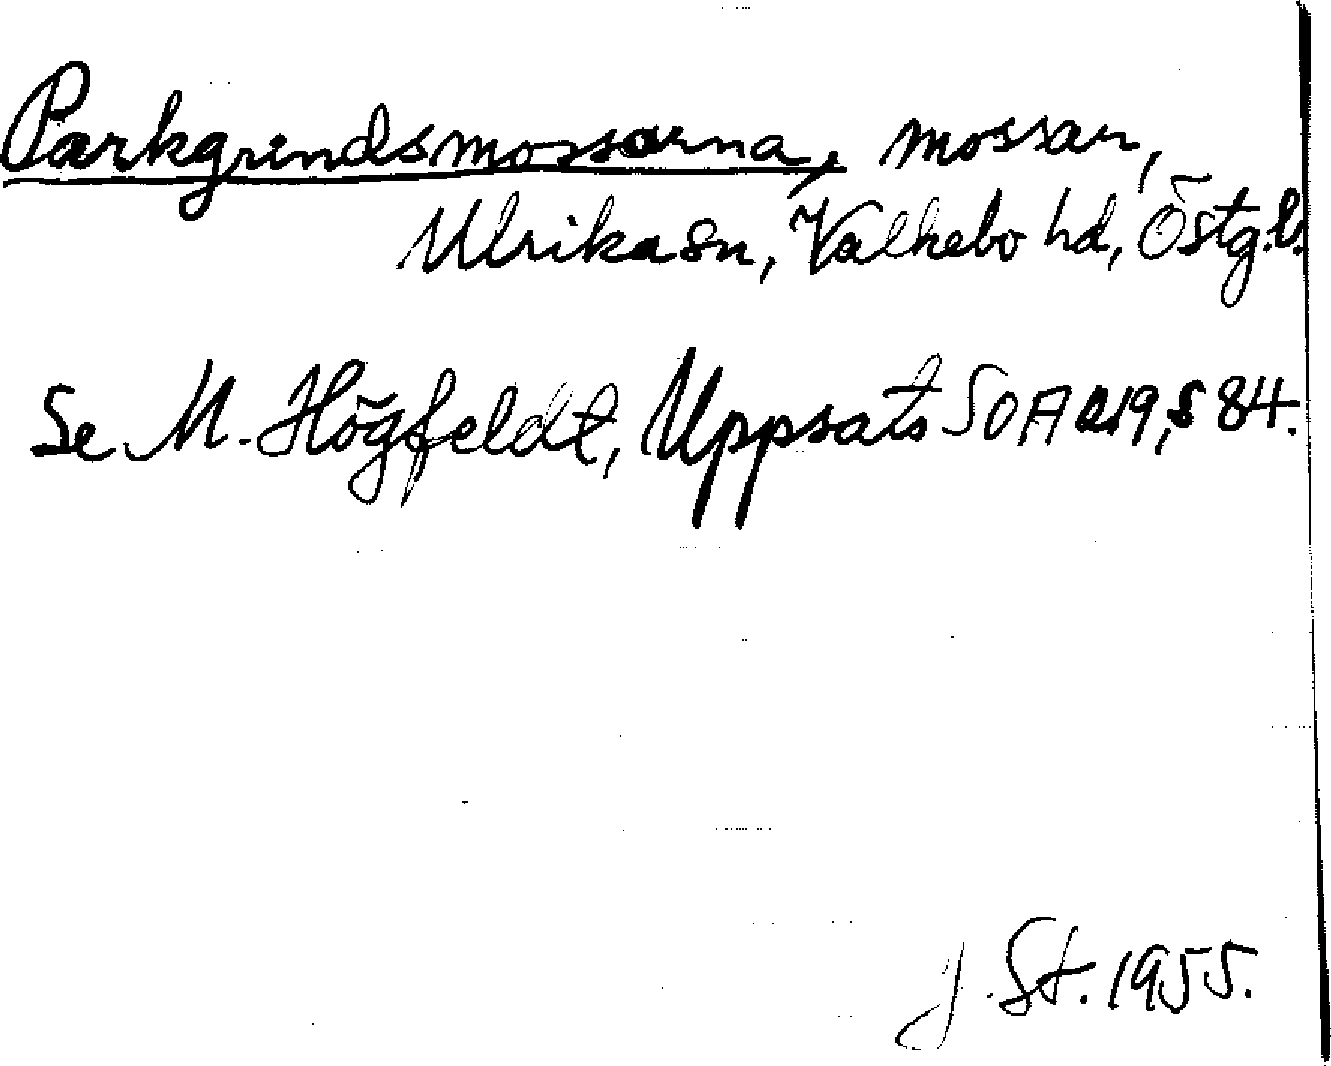 Parkgrindsmossarna, mossar,
Ulrika sn, Valkebo hd, Östg.l.
Se M. Högfeldt, Uppsats SOA 219, s 84.
J. St. 1955.